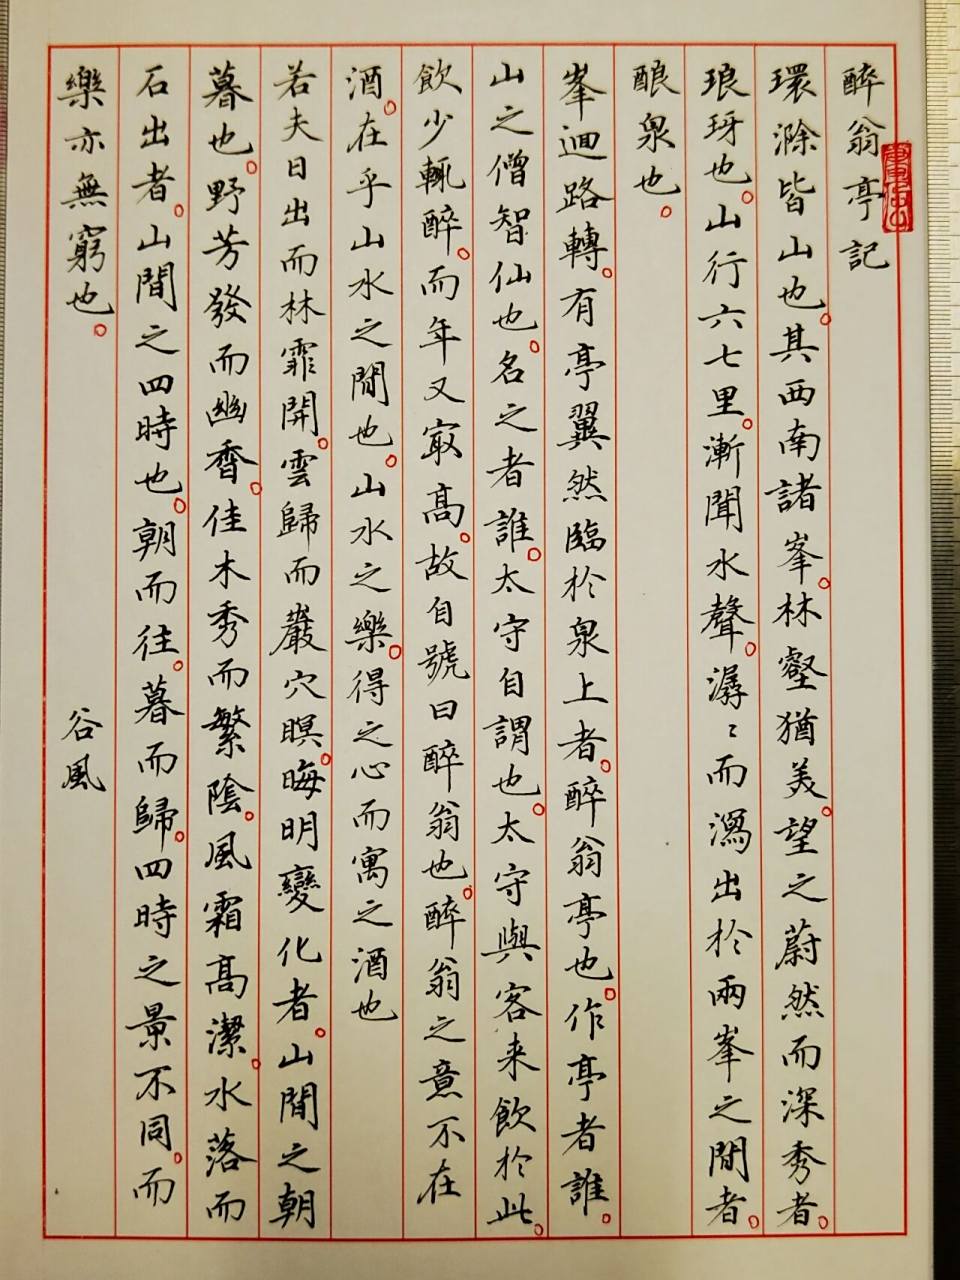 醉翁亭記
環滁皆山也。其西南諸峯。林壑猶美。望之蔚然而深秀者。
琅玡也。山行六七里。漸聞水聲。潺〻而瀉出於兩峯之間者。
酿泉也。
峯迴路轉。有亭翼然臨於泉上者。醉翁亭也。作亭者誰。
山之僧智仙也。名之者誰。太守自謂也。太守與客来飲於此。
飲少輒醉。而年又㝡高。故自號曰醉翁也。醉翁之意不在
酒。在乎山水之間也。山水之樂。得之心而寓之酒也
若夫日出而林霏開。雲歸而巖穴暝。晦明變化者。山間之朝
暮也。野芳發而幽香。佳木秀而繁陰。風霜高潔。水落而
石出者。山間之四時也。朝而往。暮而歸。四時之景不同。而
樂亦無窮也。
谷風